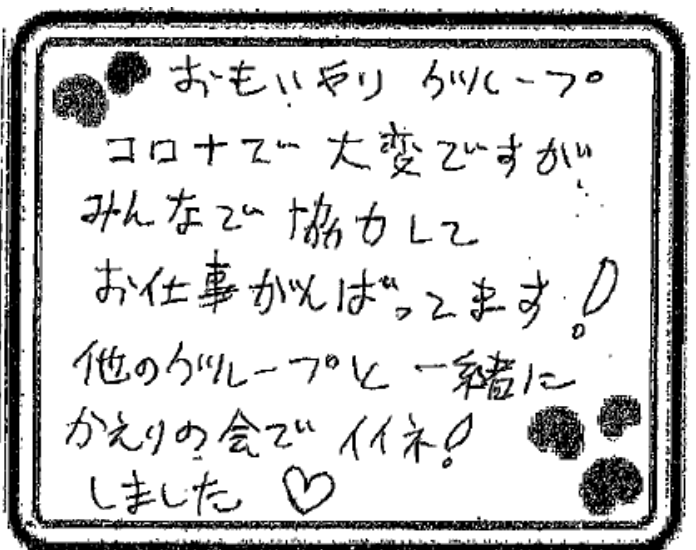 おもいやり グループ
コロナで 大変ですが
みんなで 協力して
お仕事がんばってます!
他のグループと 一緒に
かえりの会で イイネ!
しました ♡